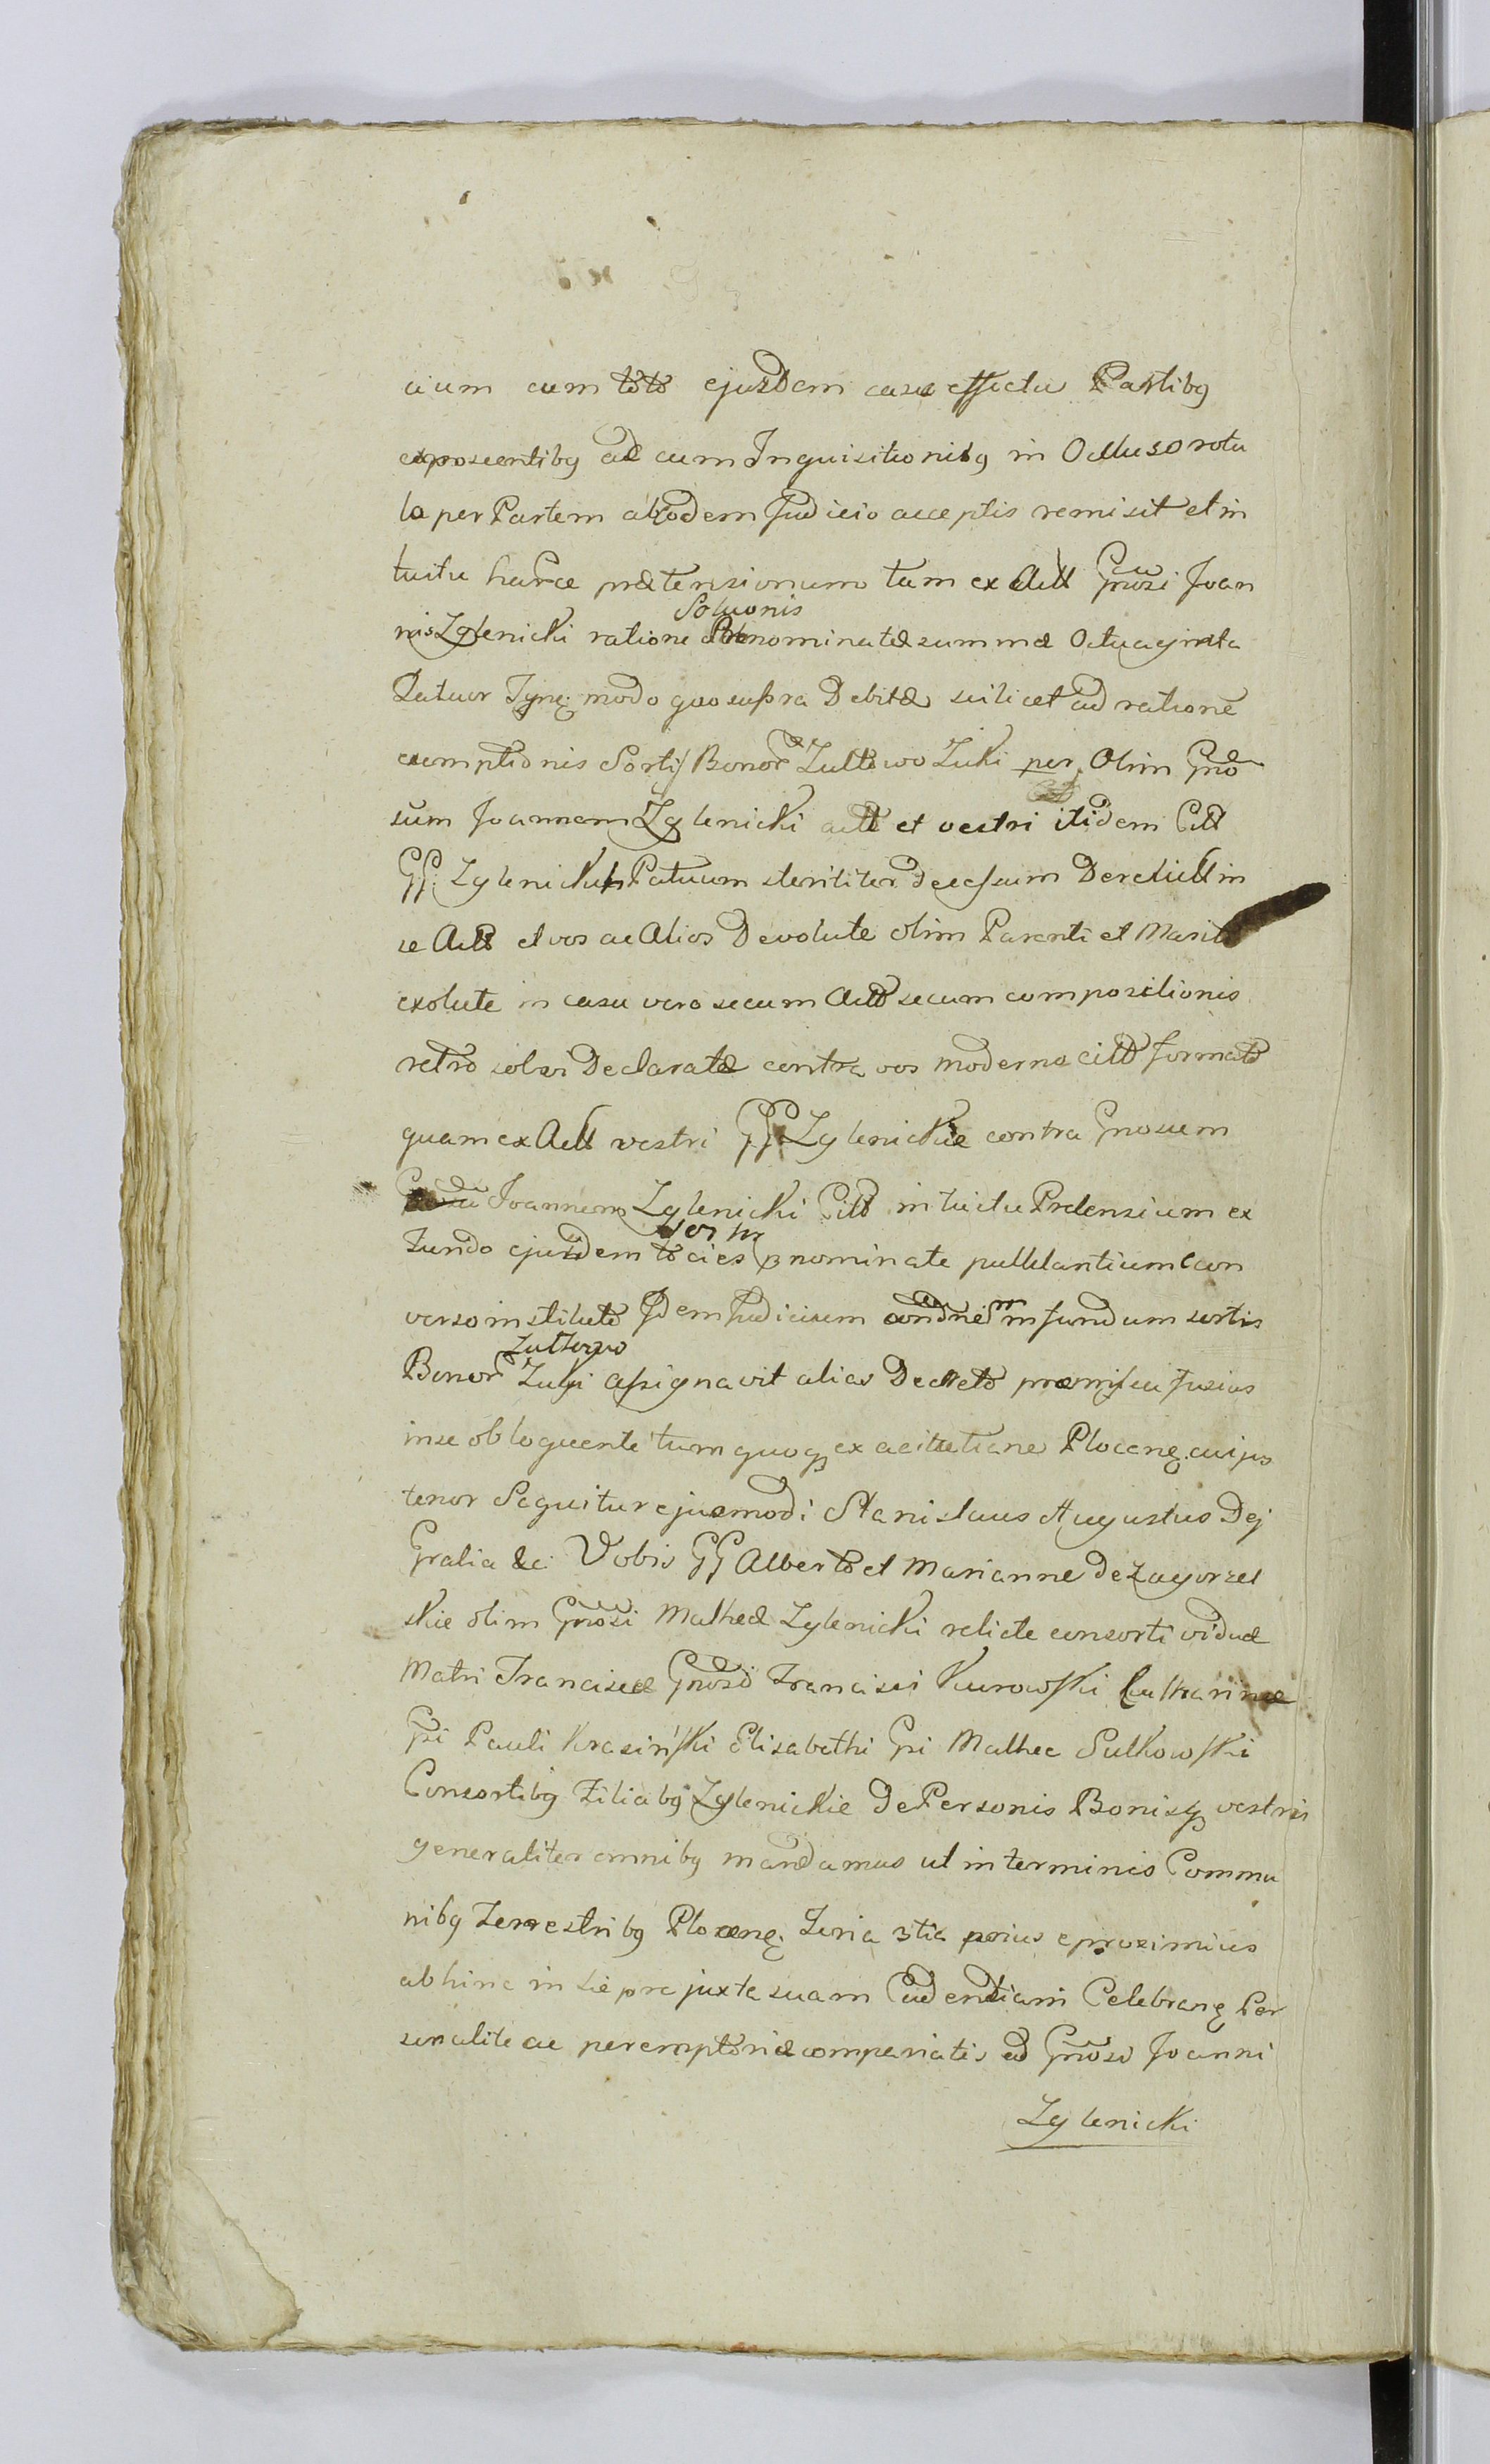 cium cum toto ejusdem causa effectu Partibg
exposcentibg ac cum Inquisitionibg in Ocluso rotu
lo per Partem ab eodem Judicio acceptis remisit et in
tuitu harce prætensionum tam ex Actt Gnosi Joan
nis Zglenicki ratione Soluonis nominatæ summæ Octuaginta
Quatuor Tynf. modo quo supra Debitæ scilicet ad rationē
exemptionis Sortis Bonor Zultowo Zuki per Olim Gno
sum Joannem Zglenicki actt et vestri itidem Citt
GG. Zglenickich Patruum steriliter decessum Derelictt in
se Actt et vos ac Alios Devolute olim Parenti et Marito
exolute in casu vero secum Actt secum composilionis
retro solvi Declaratæ contra vos moderno citt formato
quam ex Actt vestri GG. Zglenickie contra Gnosum
Joannem Zglenicki Citt intuitu Prætensium ex
Fundo ejusdem Sortis tocies nominate pullulantium econ
verso instituto Idem Judicium condnem in fundum sortis
Bonor Zultowo Zuki assignavit alias Decreto præmissa fusius
in se obloquente tum quoq ex acitatione Plocenę. cujus
tenor Sequitur ejusmodi Stanislaus Augustus Dej
Gratia &c. Vobis GG Alberto et Marianne de Zagorzel
skie olim Gnosi Matheæ Zglenicki relicte consorti viduæ
Matri Franciscæ Gnosi Francisci Kurowski Catharinæ
Gsi Pauli Krasiński Elisabethi Gsi Mathee Sulkowski
Consortibg Filiabg Zglenickie de Personis Bonisq vestris
generaliter omnibg mandamus ut in terminis Commu
nibg Terrestribg Plocenę. Feria 3tia prius e proximius
abhinc in sie pre juxta suam Cadentiam Celebranę Per
sonalite ac peremptorie compariatis ad Gnosi Joanni
Zglenicki